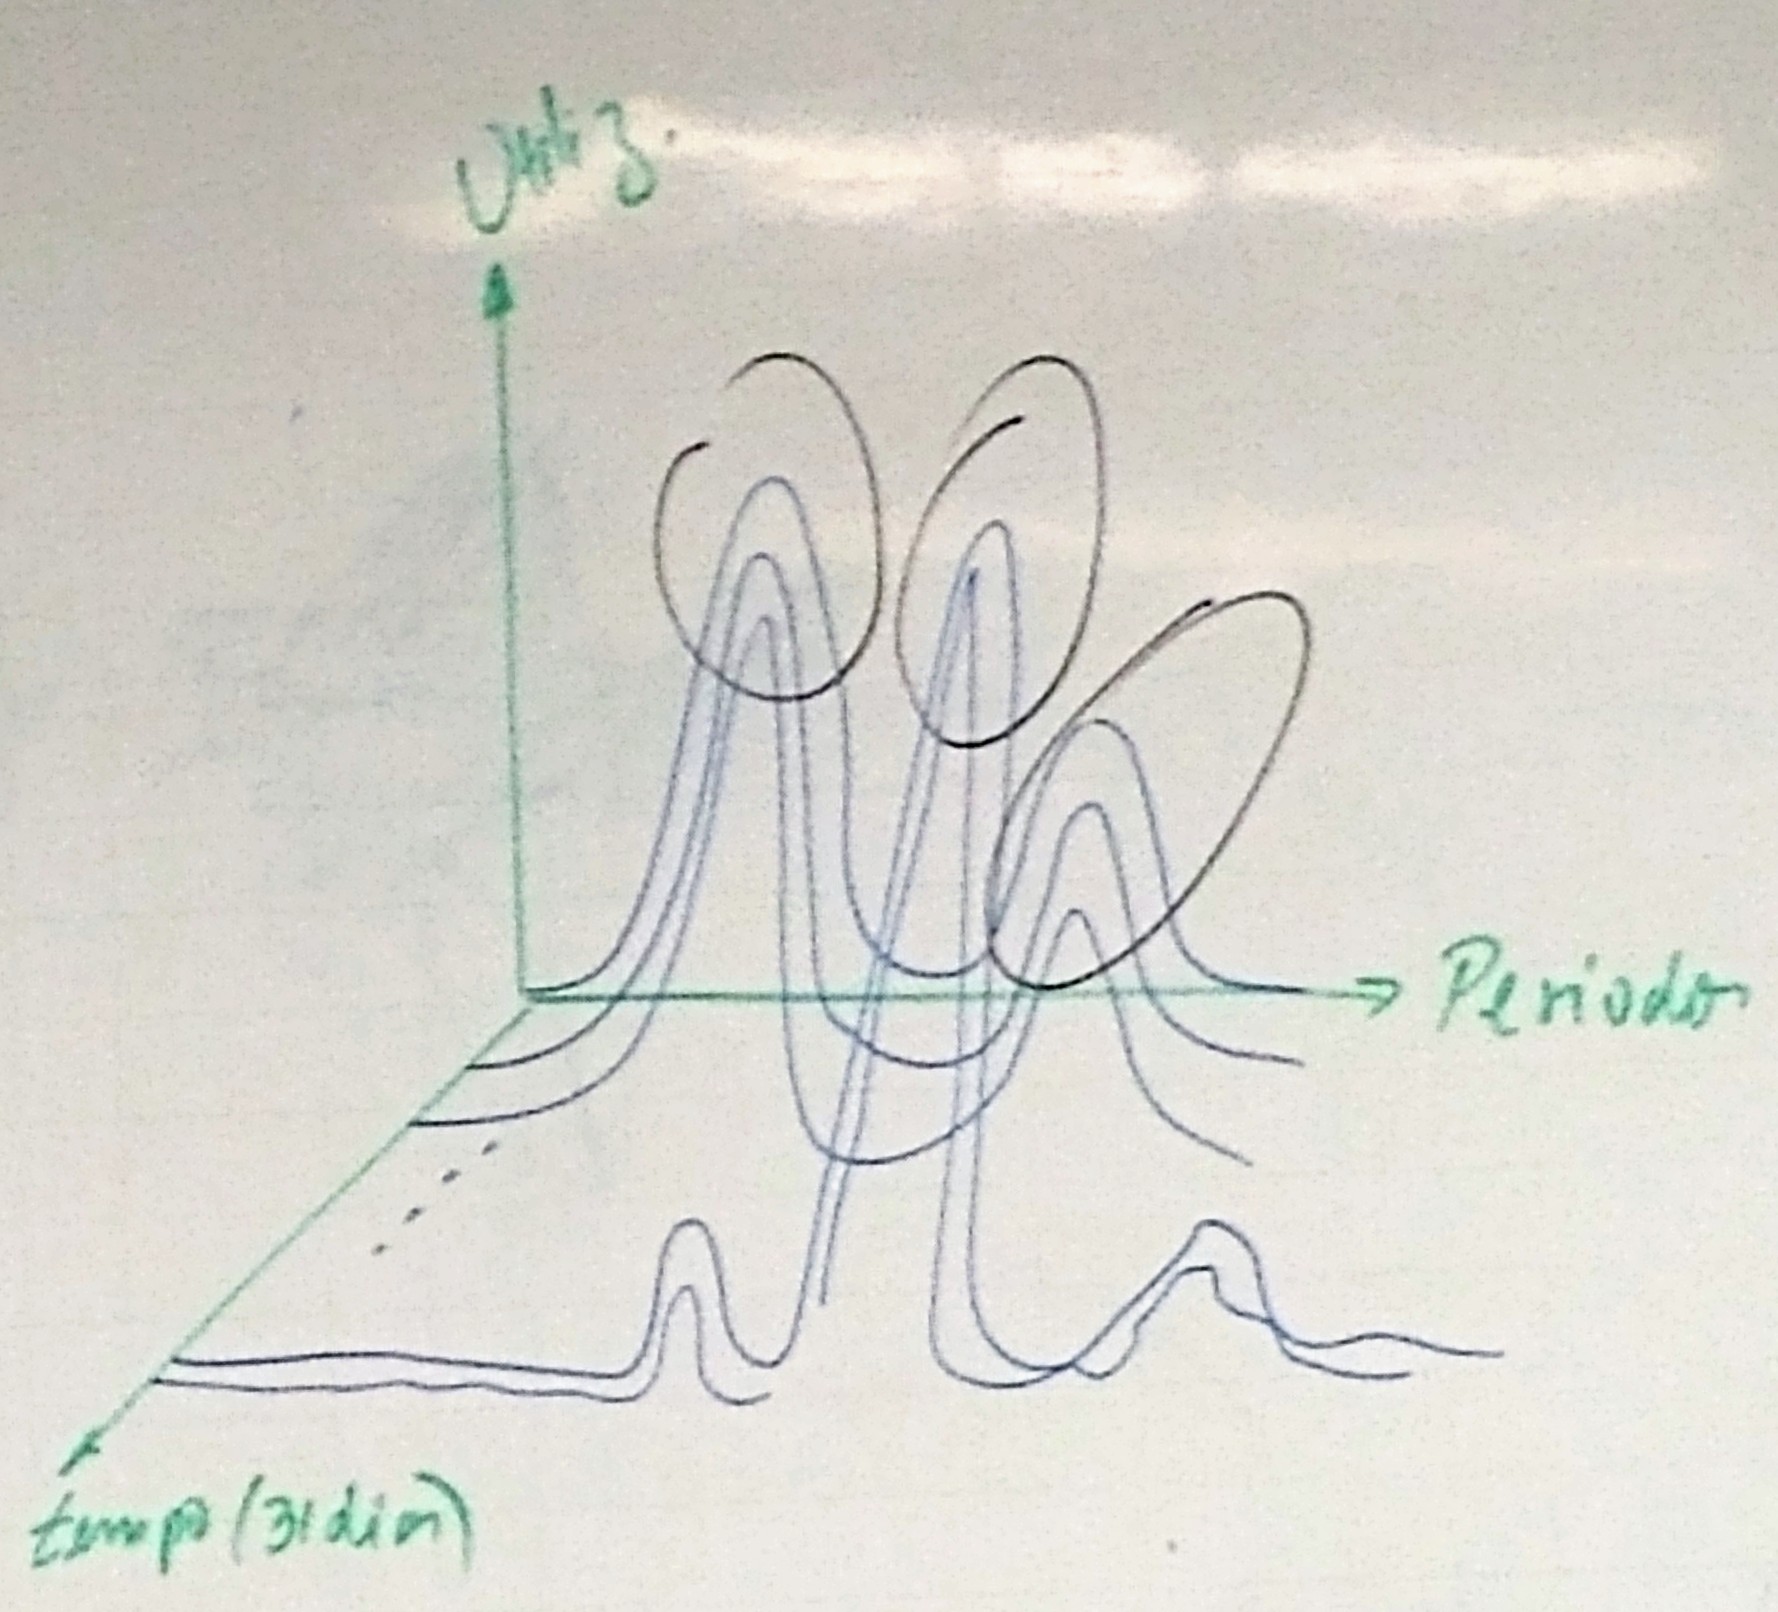 Utiliz.
Periodos
tempo (31 dias)